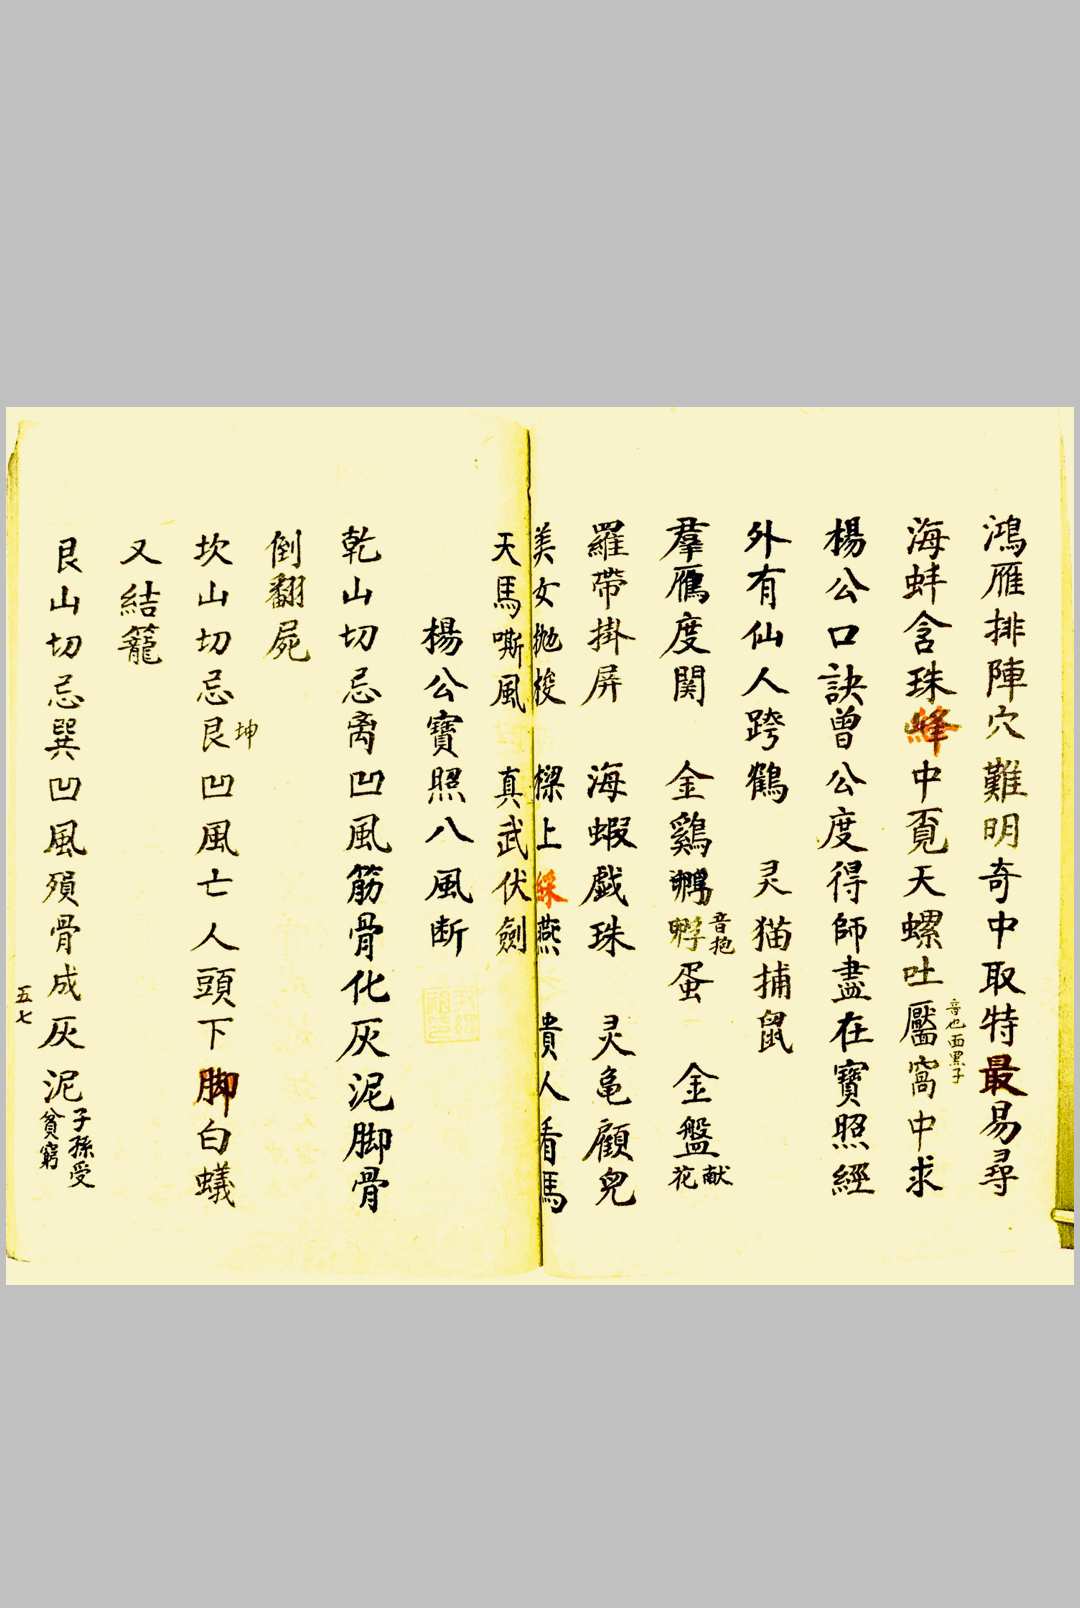 鴻雁排陣穴難明奇中取特最易尋
海蚌含珠峰中覔天螺吐靨音也面黑子窩中求
楊公口訣曾公度得師盡在寶照經
外有仙人跨鶴　灵猫捕鼠
羣鴈度関　金鷄孵音抱蛋　金盤献花
羅帶掛屏　海蝦戯珠　灵龜顧兒
美女抛梭　樑上綵燕　貴人看馬
天馬嘶風　真武伏劍
楊公寶照八風断
乾山切忌离凹風筋骨化灰泥脚骨
倒翻屍
坎山切忌艮坤凹風亡人頭下脚白蟻
又結籠
艮山切忌巽凹風殞骨成灰泥子孫受貧窮
五七